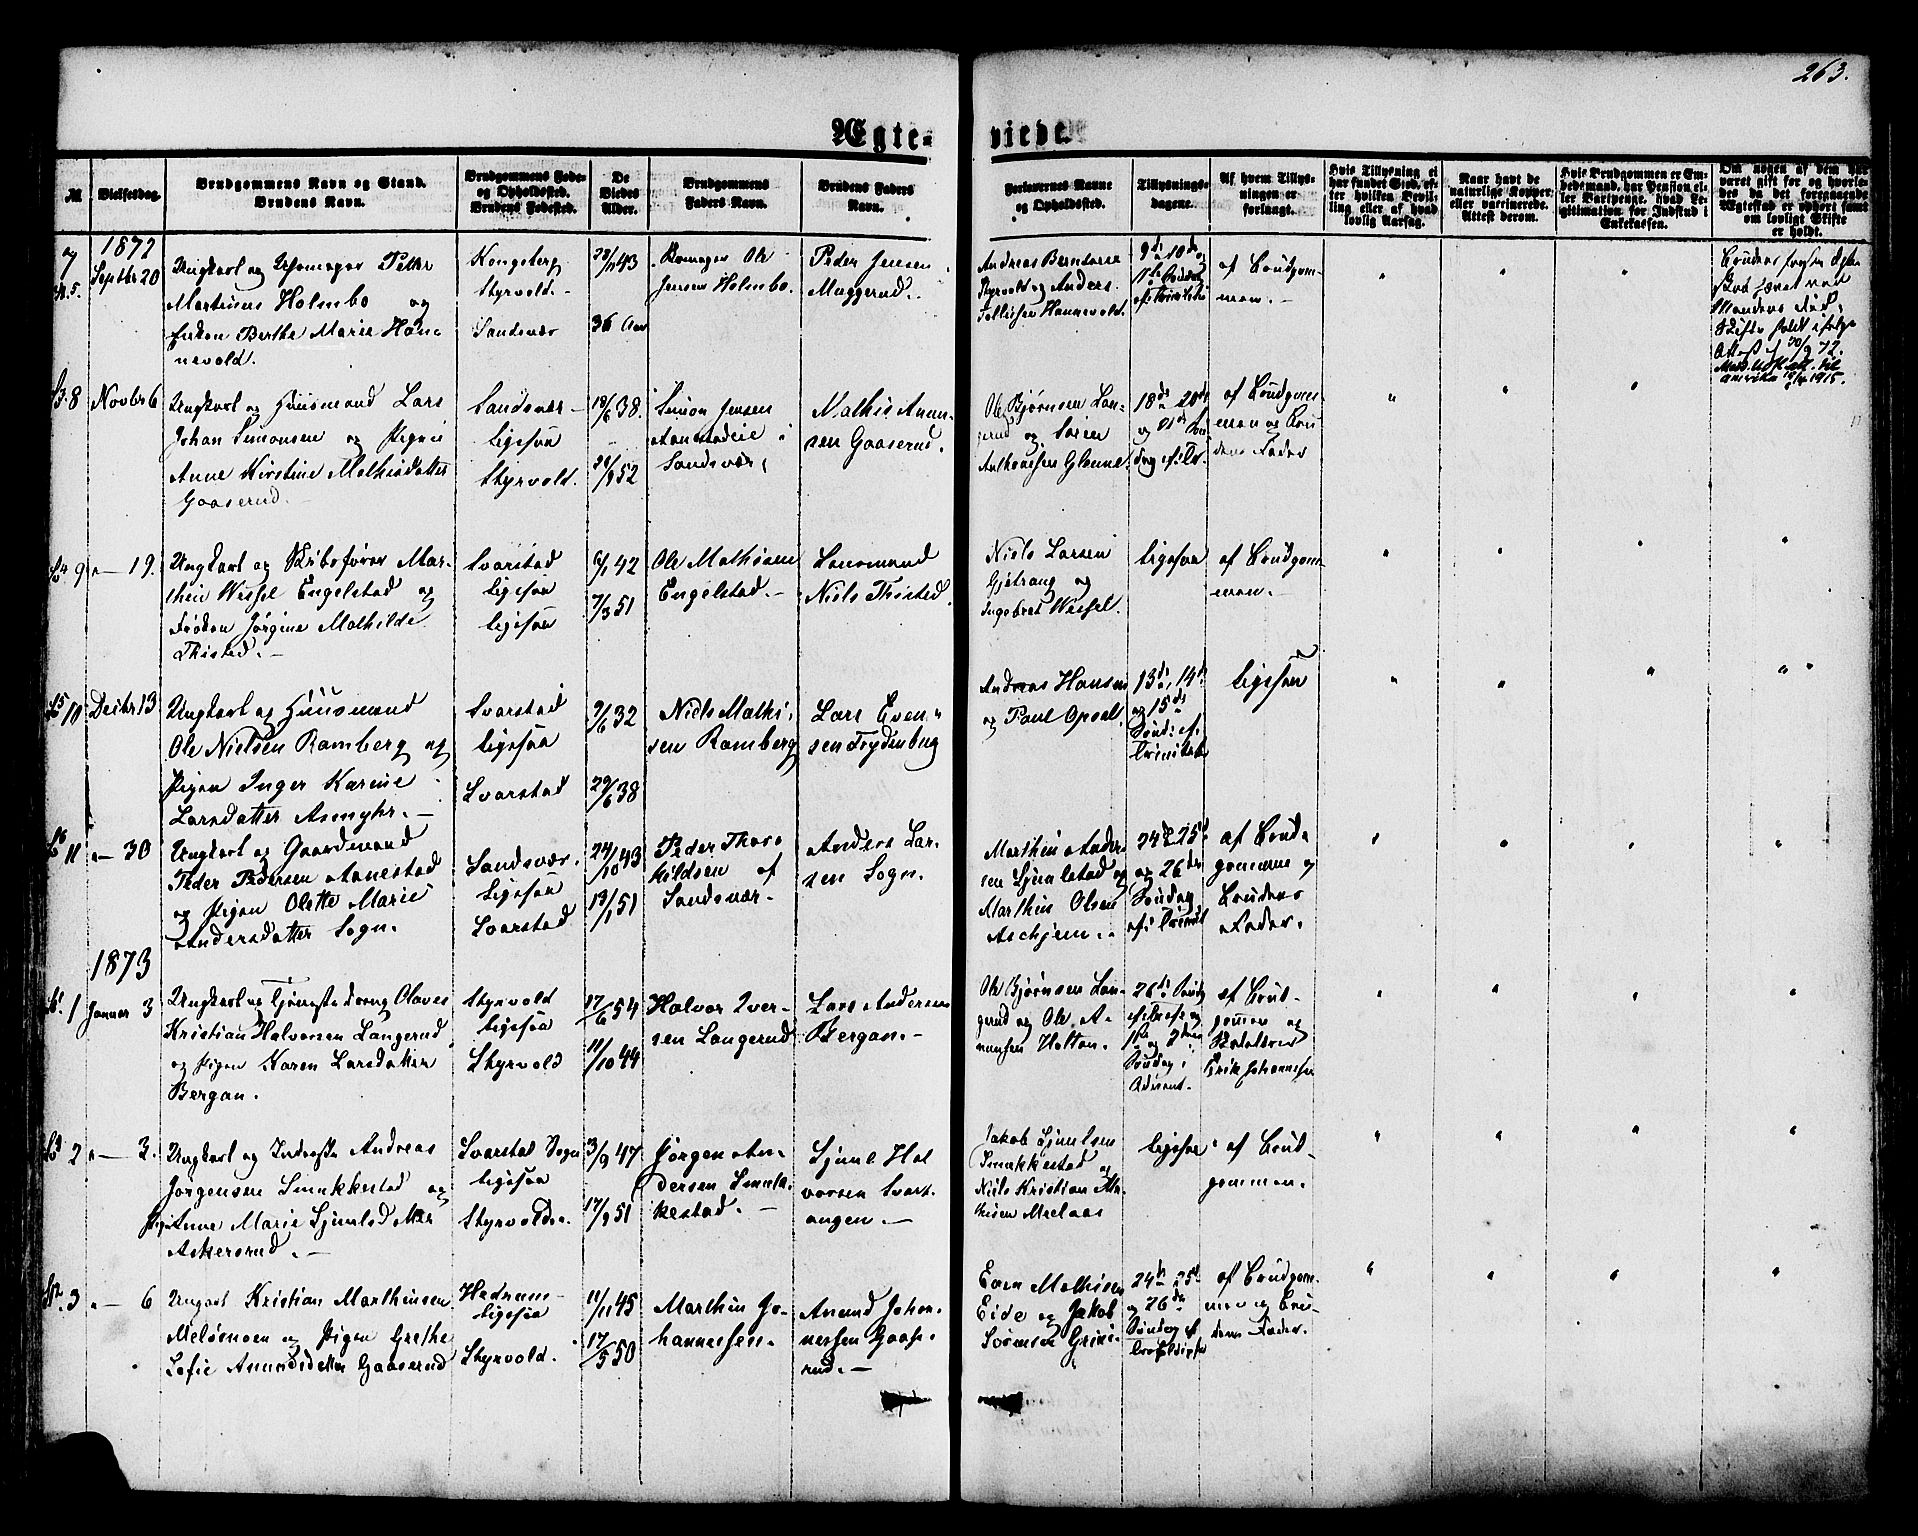 263.
Ægte-
viede.
№
Vielsesdag.
Brudgommens Navn og Stand.
Brudens Navn.
Brudgommens Føde-
og Opholdssted.
Brudens Fødested.
De
Viedes
Alder.
Brudgommens
Faders Navn.
Brudens Faders
Navn.
Forlovernes Navne
og Opholdssted.
Tillysnings-
dagene.
Af hvem Tillys-
ningen er
forlangt.
Hvis Tillysning ei
har fundet Sted, ef-
ter hvilken Bevil-
ling eller af hvad
lovlig Aarsag.
Naar havt de
naturlige Kopper
eller vaccinerede.
Attest derom.
Hvis Brudgommen er Em-
bedsmand, har Pension el-
ler Vartpenge, hvad Le-
gitimation for Indskud i
Enkekassen.
Om nogen af dem har
været gift før og hvorle-
des da det foregaaende
Ægteskab er ophørt samt
om lovligt Skifte
er holdt.
1872
7
Septbr 20
Ungkarl og Skomager Peter
Martinus Holmbo og
Enken Berthe Marie Han-
nevold.
Kongsberg
Styrvold.
Sandsvær
43
36 Aar
Skomager Ole
Jensen Holmbo.
Peder Jensen
Muggerud.
Andreas Berntsen
Styrvold og Anders
Hannevold.
9de 10de
11te Søndag
af Brudgom-
men.
Manden Død,
1915.
8
Novbr 6
Ungkarl og Huusmand Lars
Johan Simonsen og Pigen
Anne Kirstine Mathisdatter
Gaaserud.
Sandsvær
ligesaa
Styrvold.
38.
52
Simon Jensen
Aanestadeie i
Sandsvær
Mathis Anun-
sen Gaaserud.
Ole Bjørnsen Lan-
gerud og Søren
Anthonsen Glenne.
18de 20de
og 21de Søn-
dag ef. Tr.
af Brudgom-
men og Bru-
dens Fader
9
" — 19.
Ungkarl og Skibsfører Mar-
thin Wessel Engelstad og
Frøken Jørgine Mathilde
Thisted.
Svarstad
ligesaa
ligesaa
6/1 42
7/3 51
Ole Mathisen
Engelstad.
Lensmand
Niels Thisted.
Niels Larsen
Gjetrang og
Ingebret Wessel.
ligesaa
af Brudgom-
men.
10
Decbr 13
Ungkarl og Huusmand
Ole Nielsen Ramberg og
Pigen Inger Karine
Larsdatter Asmyhr.
Svarstad
ligesaa
Svarstad
9/6 32
29/6 38
Niels Mathi-
sen Ramberg
Lars Even-
sen Frydenlug
Andreas Hansen
og Paul Opsal.
13de, 14de
og 15de
Sønd. ef.
Trinitatis
ligesaa
11
" — 30
Ungkarl og Gaardmand
Peder Pedersen Aanestad
og Pigen Olette Marie
Andersdatter Sogn.
Sandsvær.
ligesaa
Svarstad
24/10 43
19/1 51
Peder Thor-
kildsen af
Sandsvær.
Anders Lar-
sen Sogn.
Marthin Ander-
sen Ljuulstad og
Marthin Olsen
Aschjem.
24de 25de
og 26de
Søndag
ef. Trinit
af Brud-
gommen og
Brudens
Fader.
1873
1
Januar 3
Ungkarl og Tjenestedreng Olaves
Kristian Halvorsen Langerud
og Pigen Karen Larsdatter
Bergan.
Styrvold
ligesaa
Styrvold
17/6 54
11/10 44
Halvor Iver-
sen Langerud
Lars Andersen
Bergan.
Ole Bjørnsen Lan-
gerud og Ole A-
mundsen Holtan.
26de Sønd.
1ste og 2den
Søndag i
Advent.
af Brud-
gommen og
Erik Johannesen
2
" — 3.
Ungkarl og Inderste Andreas
Jørgensen Smukkestad og
Pigen Anne Marie Ljuulsdatter
Askersrud.
Svarstad Sogn
ligesaa
Styrvolds.
3/9 47
17/9 51
Jørgen An-
dersen Smuk-
kestad.
Ljuul Hal
vorsen Svart-
angen.
Jakob Ljuulsen
Smukkestad og
Niels Kristian Ma-
thisen Moelaas
ligesaa
af Brud-
gommen.
3
" — 6
Ungkarl Kristian Marthinsen
Meløsmoen og Pigen Grethe
Sofie Amundsdatter Gaaserud
Hedrum
ligesaa
Styrvold.
11/11 45
17/5 50
Marthin Jo-
hannessen.
Amund Johan-
nessen Gaase-
rud.
Even Mathisen
Eide og Jakob
Sørensen Grini.
24de 25de
og 26de
Søndag ef
af Brudgom-
men og Bru-
dens Fader.